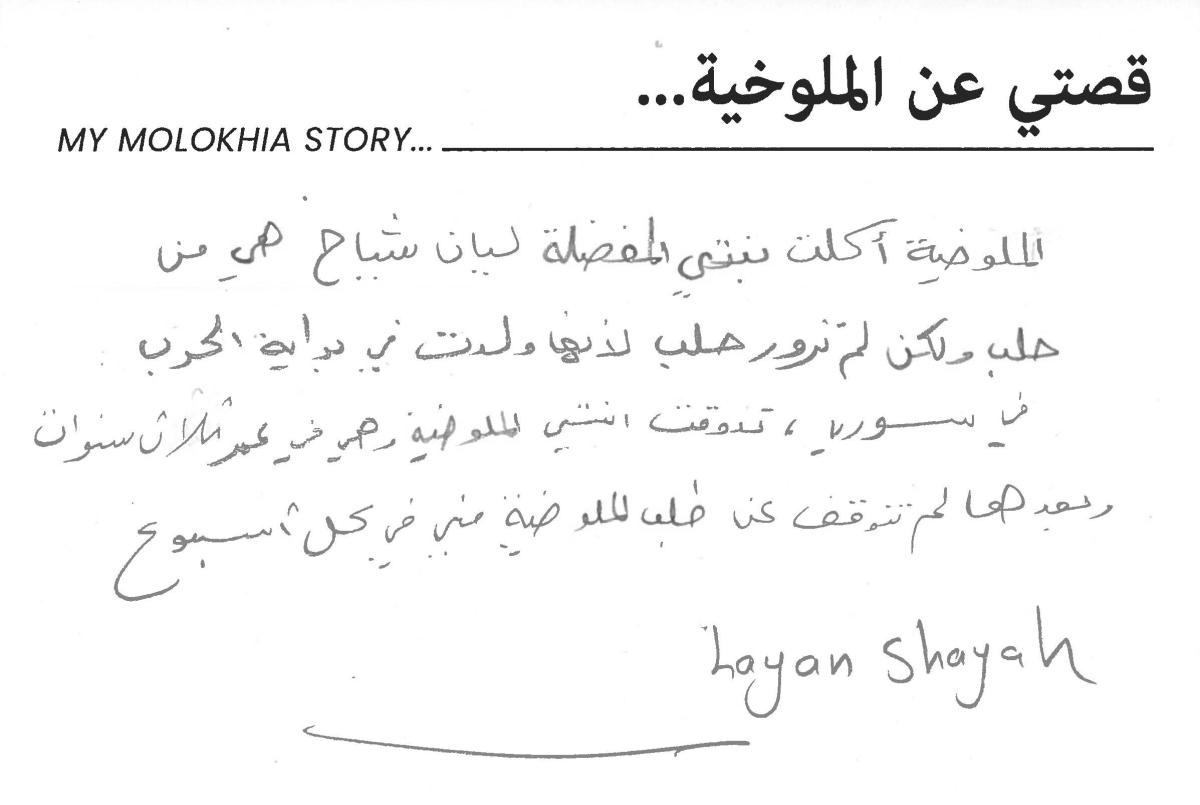 قصتي عن الملوخية...
MY MOLOKHIA STORY...
الملوخية أكلت بنتي المفضلة ليان شياح هي من
حلب ولكن لم تزور حلب لأنها ولدت في بداية الحرب
في سوريا ، تذوقت ابنتي الملوخية وهي في عمر ثلاث سنوات
وبعدها لم تتوقف عن طلب الملوخية مني في كل أسبوع
Layan Shayah